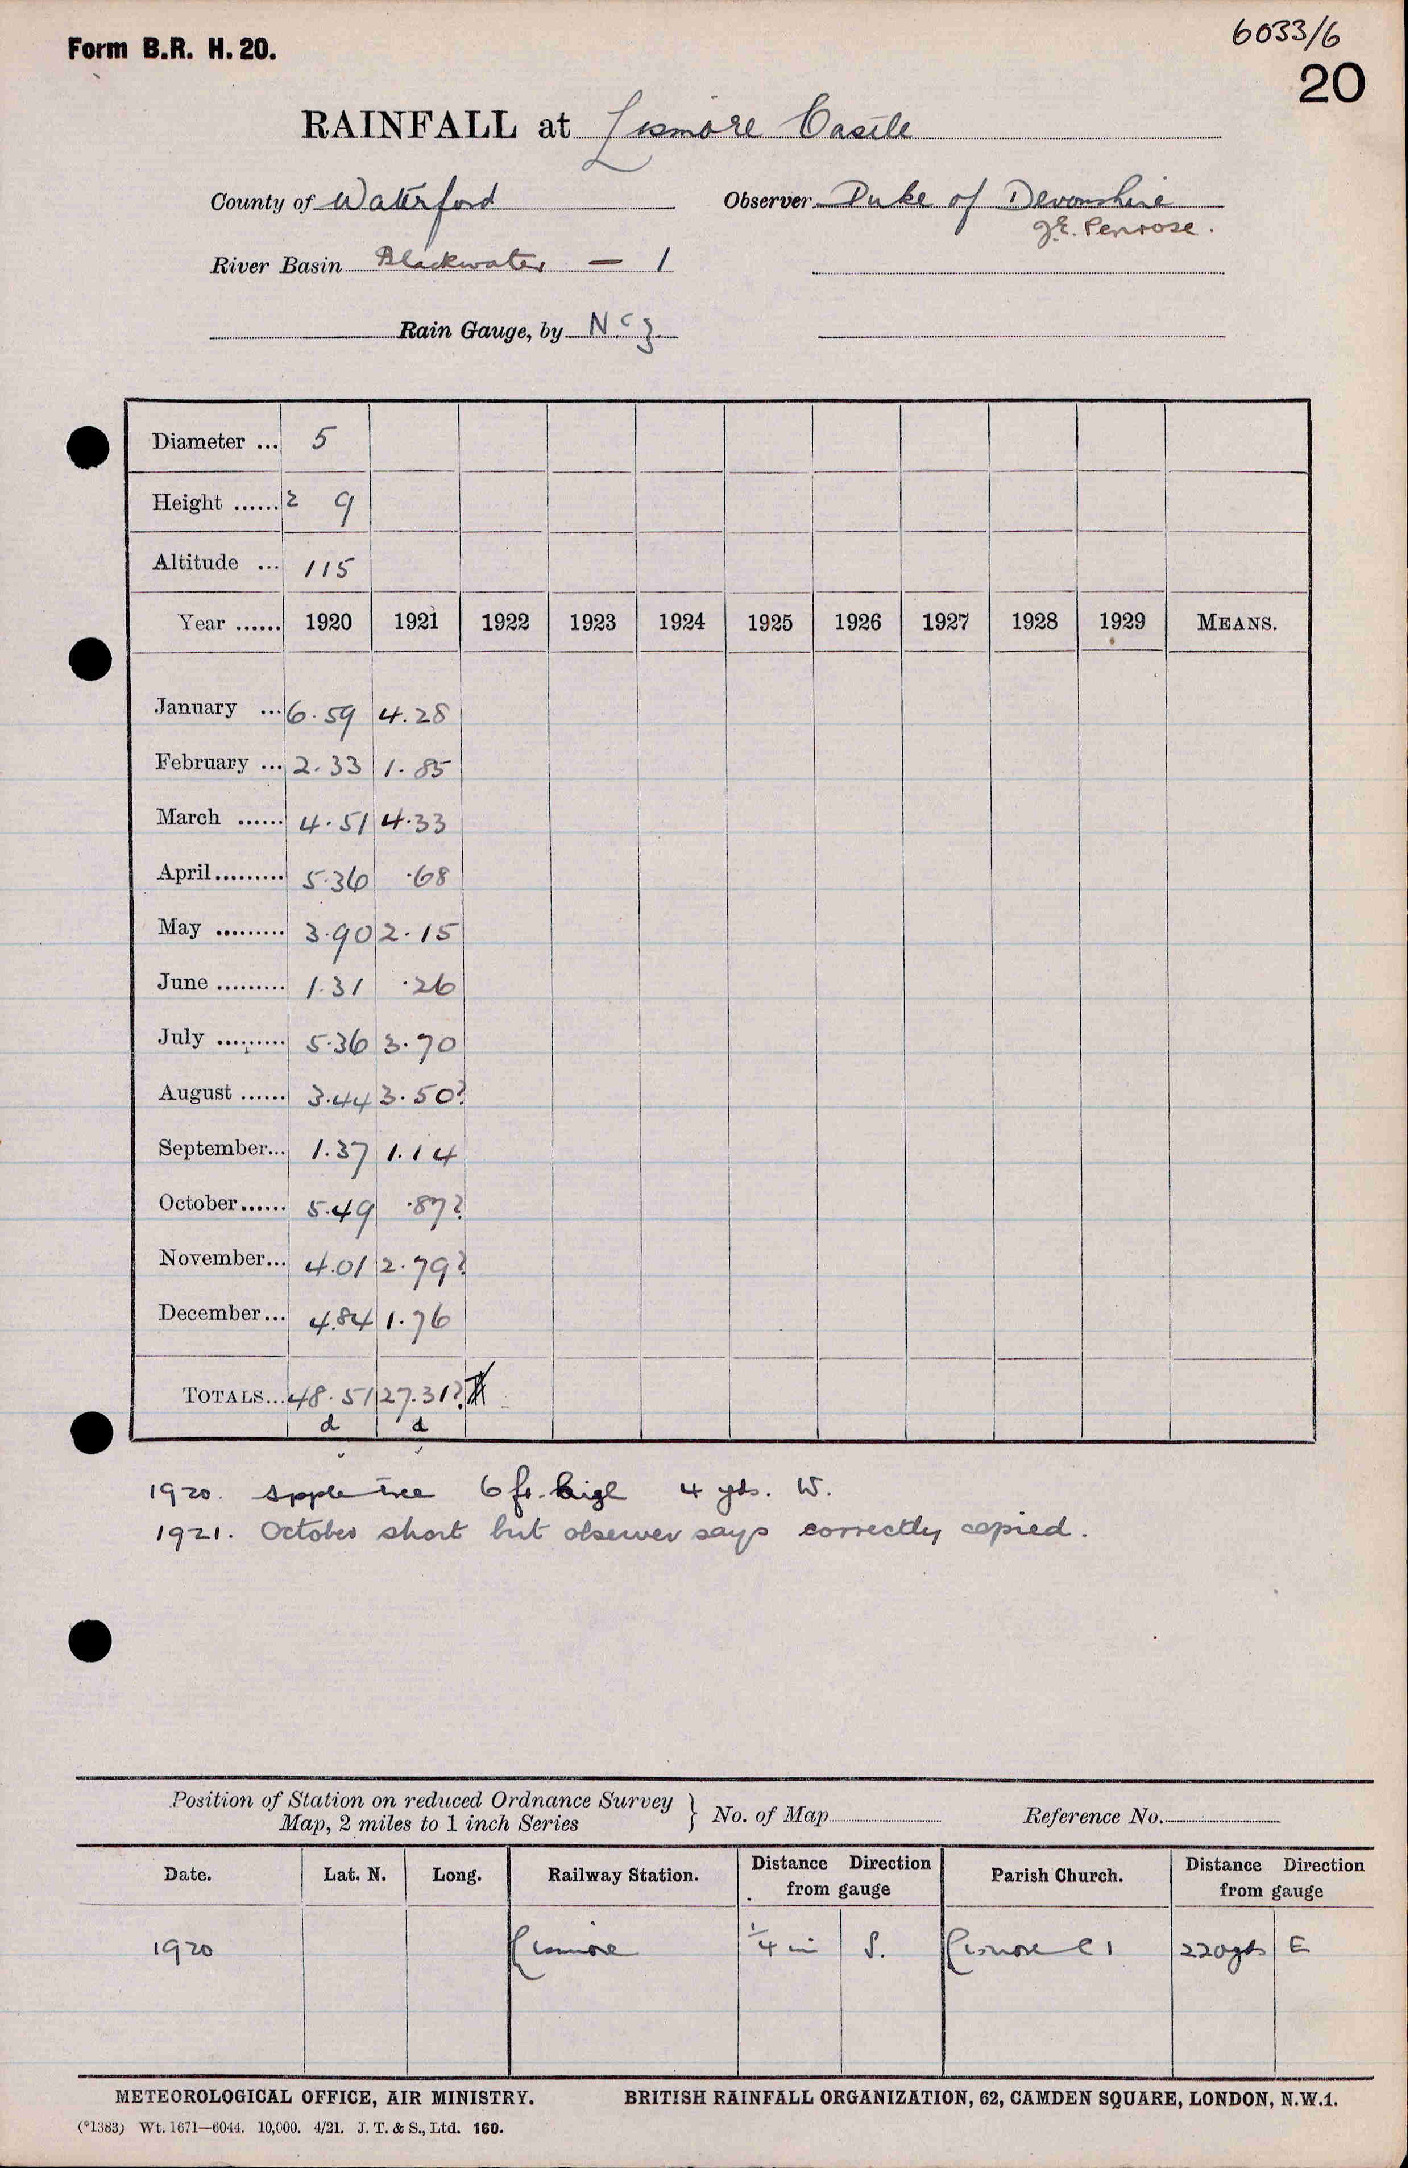 Form B.R. H. 20.
6033/6
20
RAINFALL at Lismore Castle
County of Waterford Observer Duke of Devonshire
J.E. Penrose.
River Basin Blackwater — 1
Rain Gauge, by N c z
Diameter ... 5
Height ...... 2 9
Altitude ... 115
Year ...... 1920 1921 1922 1923 1924 1925 1926 1927 1928 1929 MEANS.
January ... 6.59 4.28
February ... 2.33 1.85
March ...... 4.51 4.33
April......... 5.36 .68
May ......... 3.90 2.15
June ......... 1.31 .26
July ......... 5.36 3.70
August ...... 3.44 3.50?
September... 1.37 1.14
October...... 5.49 .87?
November... 4.01 2.79?
December... 4.84 1.76
TOTALS... 48.51 27.31?
d d
1920. Apple tree 6 ft. high 4 yds. W.
1921. October short but observer says correctly copied.
Position of Station on reduced Ordnance Survey
Map, 2 miles to 1 inch Series } No. of Map Reference No.
Date. Lat. N. Long. Railway Station. Distance Direction from gauge Parish Church. Distance Direction from gauge
1920 Lismore 1/4 m S. Lismore C I 220 yds E
METEOROLOGICAL OFFICE, AIR MINISTRY. BRITISH RAINFALL ORGANIZATION, 62, CAMDEN SQUARE, LONDON, N.W.1.
(*1383) Wt. 1671—6044. 10,000. 4/21. J. T. & S., Ltd. 160.